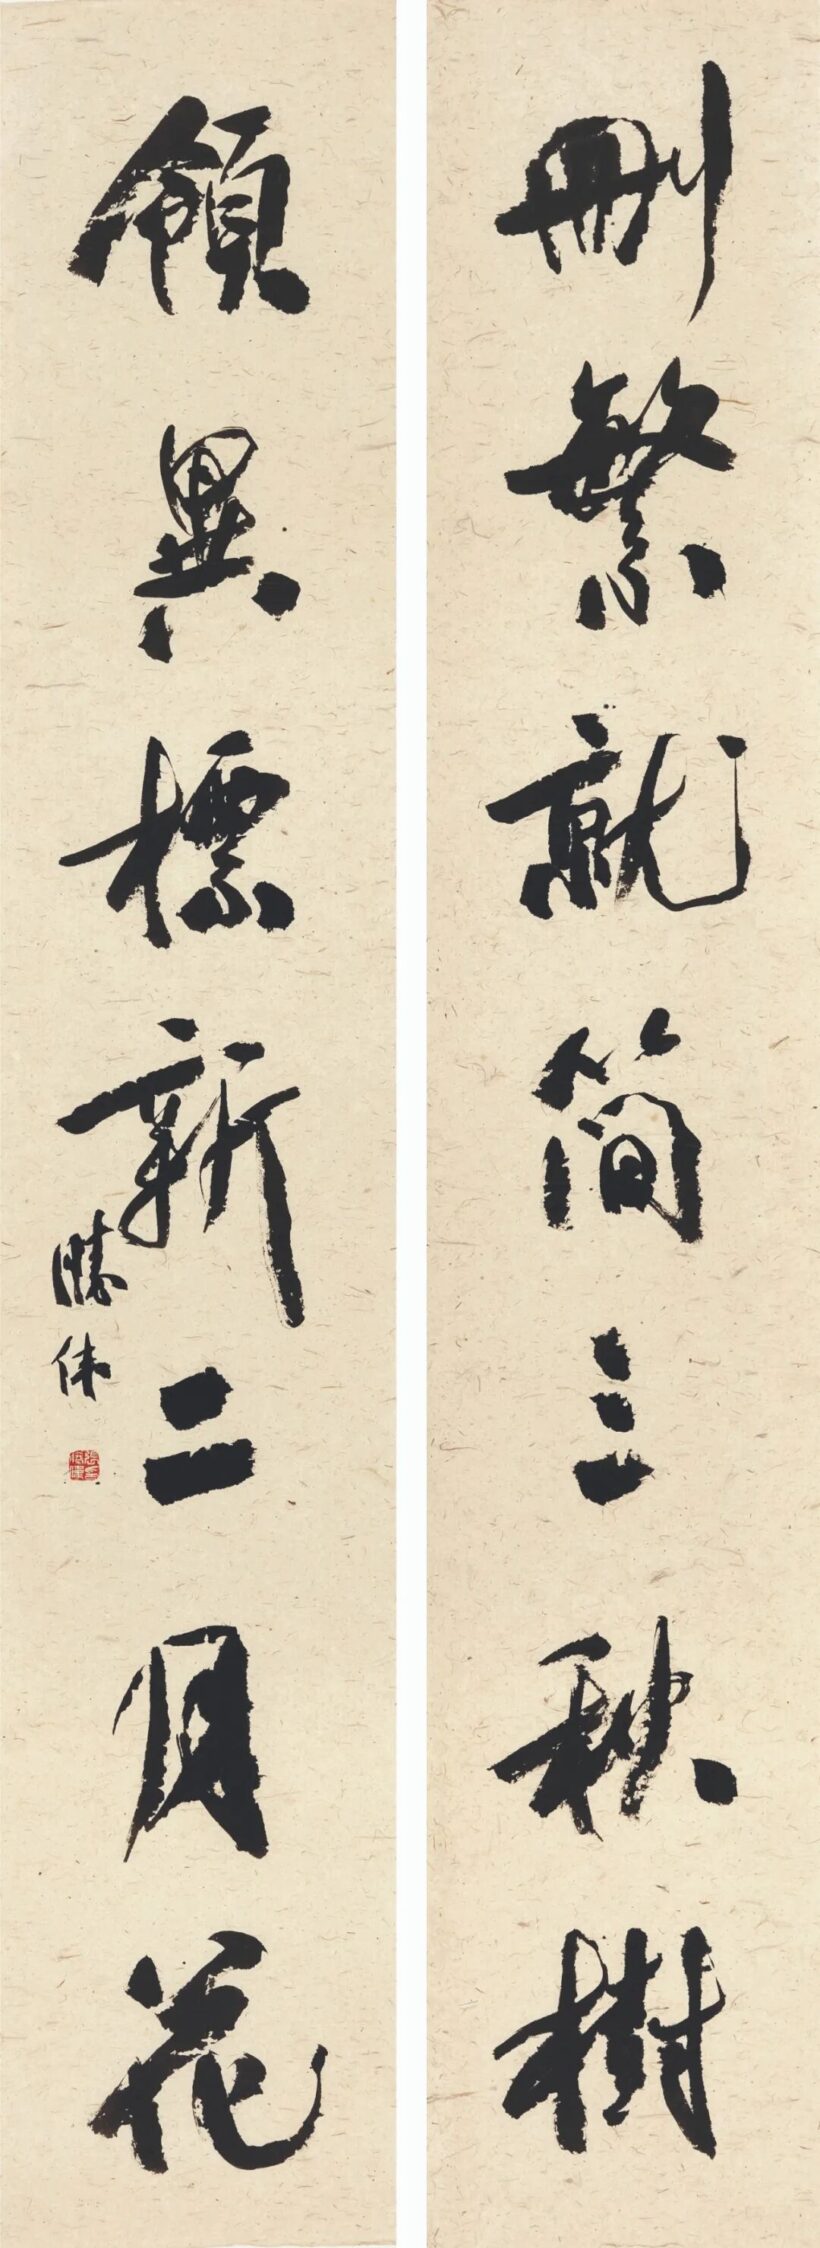 刪繁就简三秋樹
領異標新二月花
勝伟